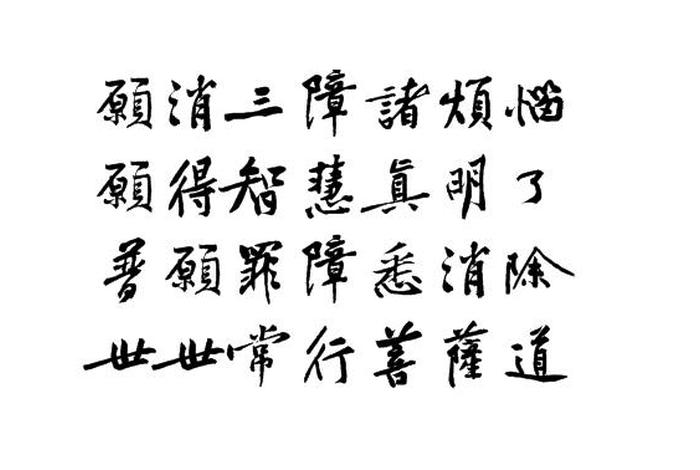 願消三障諸煩惱
願得智慧真明了
普願罪障悉消除
世世常行菩薩道